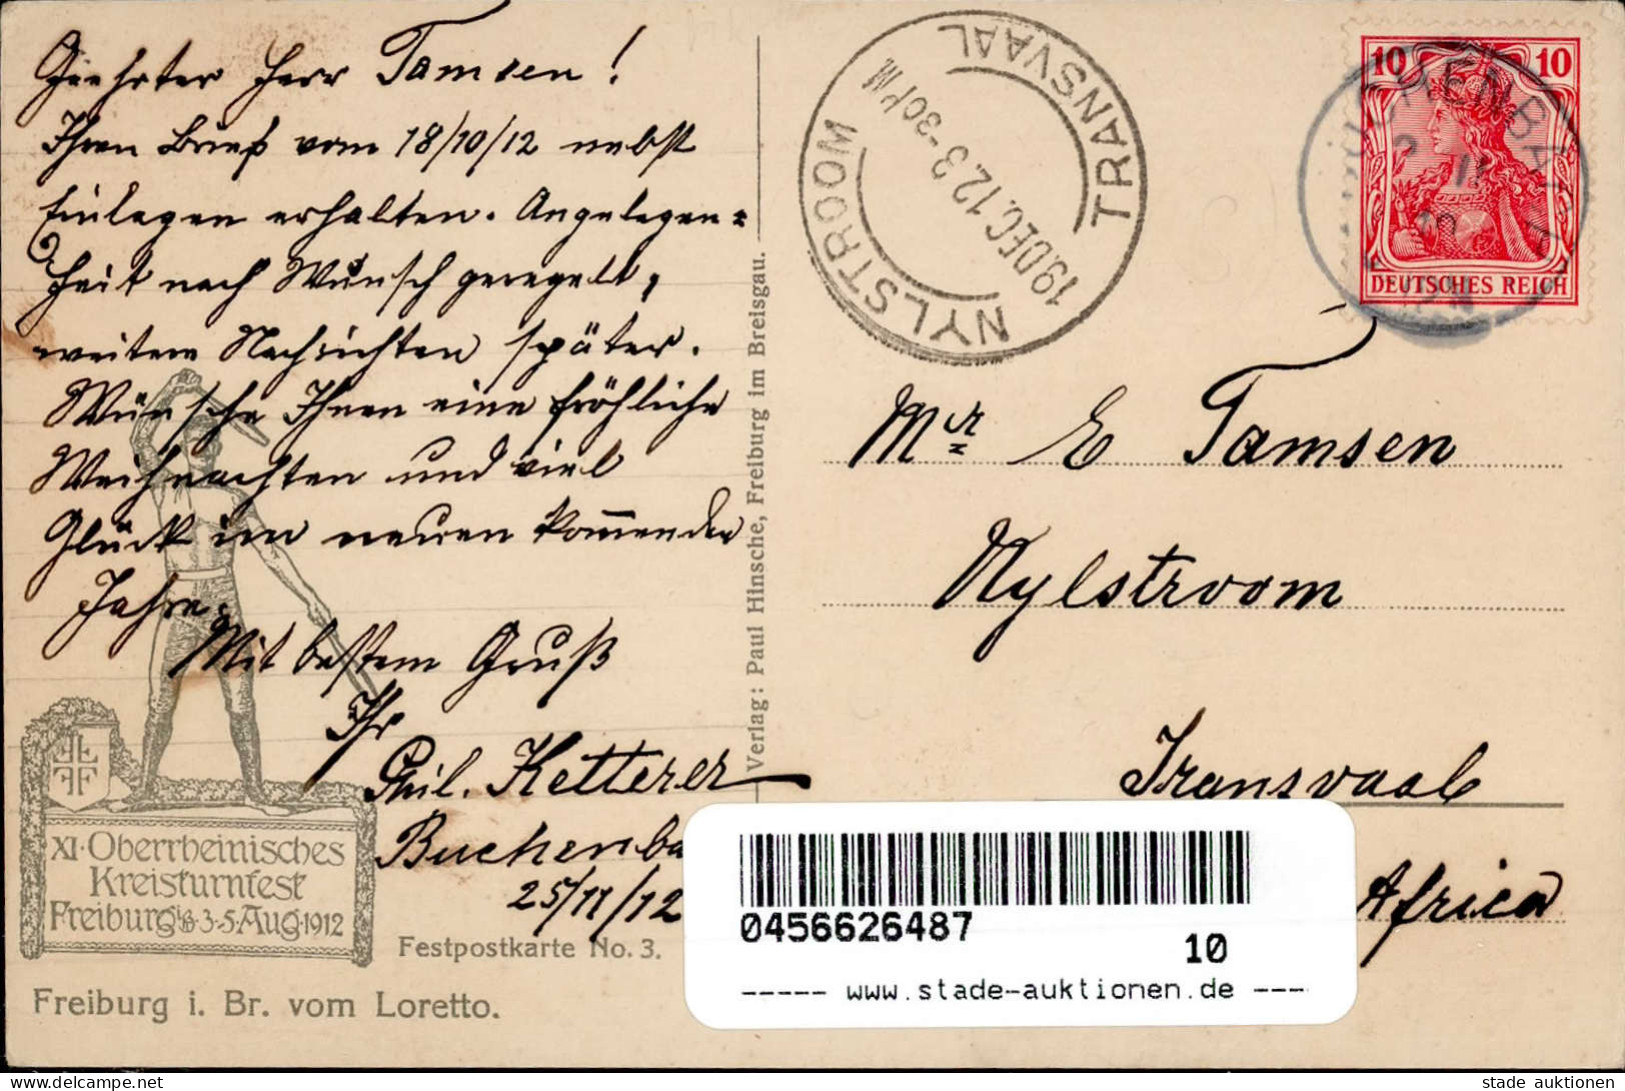 Geehrter Herr Tamsen!
Ihren Brief vom 18/10/12 nebst
Einlagen erhalten. Angelegen=
heit nach Wunsch geregelt,
weitere Nachrichten später.
Wünsche Ihnen eine fröhliche
Weihnachten und viel
Glück im neuen kommenden
Jahre.
Mit bestem Gruß
Ihr
Phil. Ketterer
Buchenba
25/11/12
XI. Oberrheinisches
Kreisturnfest
Freiburg i/B. 3-5 Aug. 1912
Festpostkarte No. 3.
Freiburg i. Br. vom Loretto.
Verlag: Paul Hinsche, Freiburg im Breisgau.
NYLSTROOM TRANSVAAL
19 DEC. 12. 3-30 PM
10 10
DEUTSCHES REICH
Mr E Tamsen
Nylstroom
Transvaal
Africa
0456626487
10
----- www.stade-auktionen.de ---
stade auktionen